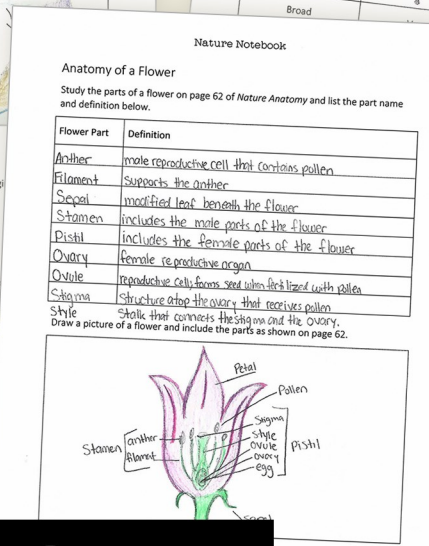 Broad
Nature Notebook
Anatomy of a Flower
Study the parts of a flower on page 62 of Nature Anatomy and list the part name
and definition below.
Flower Part Definition
Anther male reproductive cell that contains pollen
Filament supports the anther
Sepal modified leaf beneath the flower
Stamen includes the male parts of the flower
Pistil includes the female parts of the flower
Ovary female reproductive organ
Ovule reproductive cell; forms seed when fertilized with pollen
Stigma Structure atop the ovary that receives pollen
Style Stalk that connects the stigma and the ovary.
Draw a picture of a flower and include the parts as shown on page 62.
Petal
Pollen
Stigma
style
ovule
ovary
egg
Pistil
Stamen
anther
filament